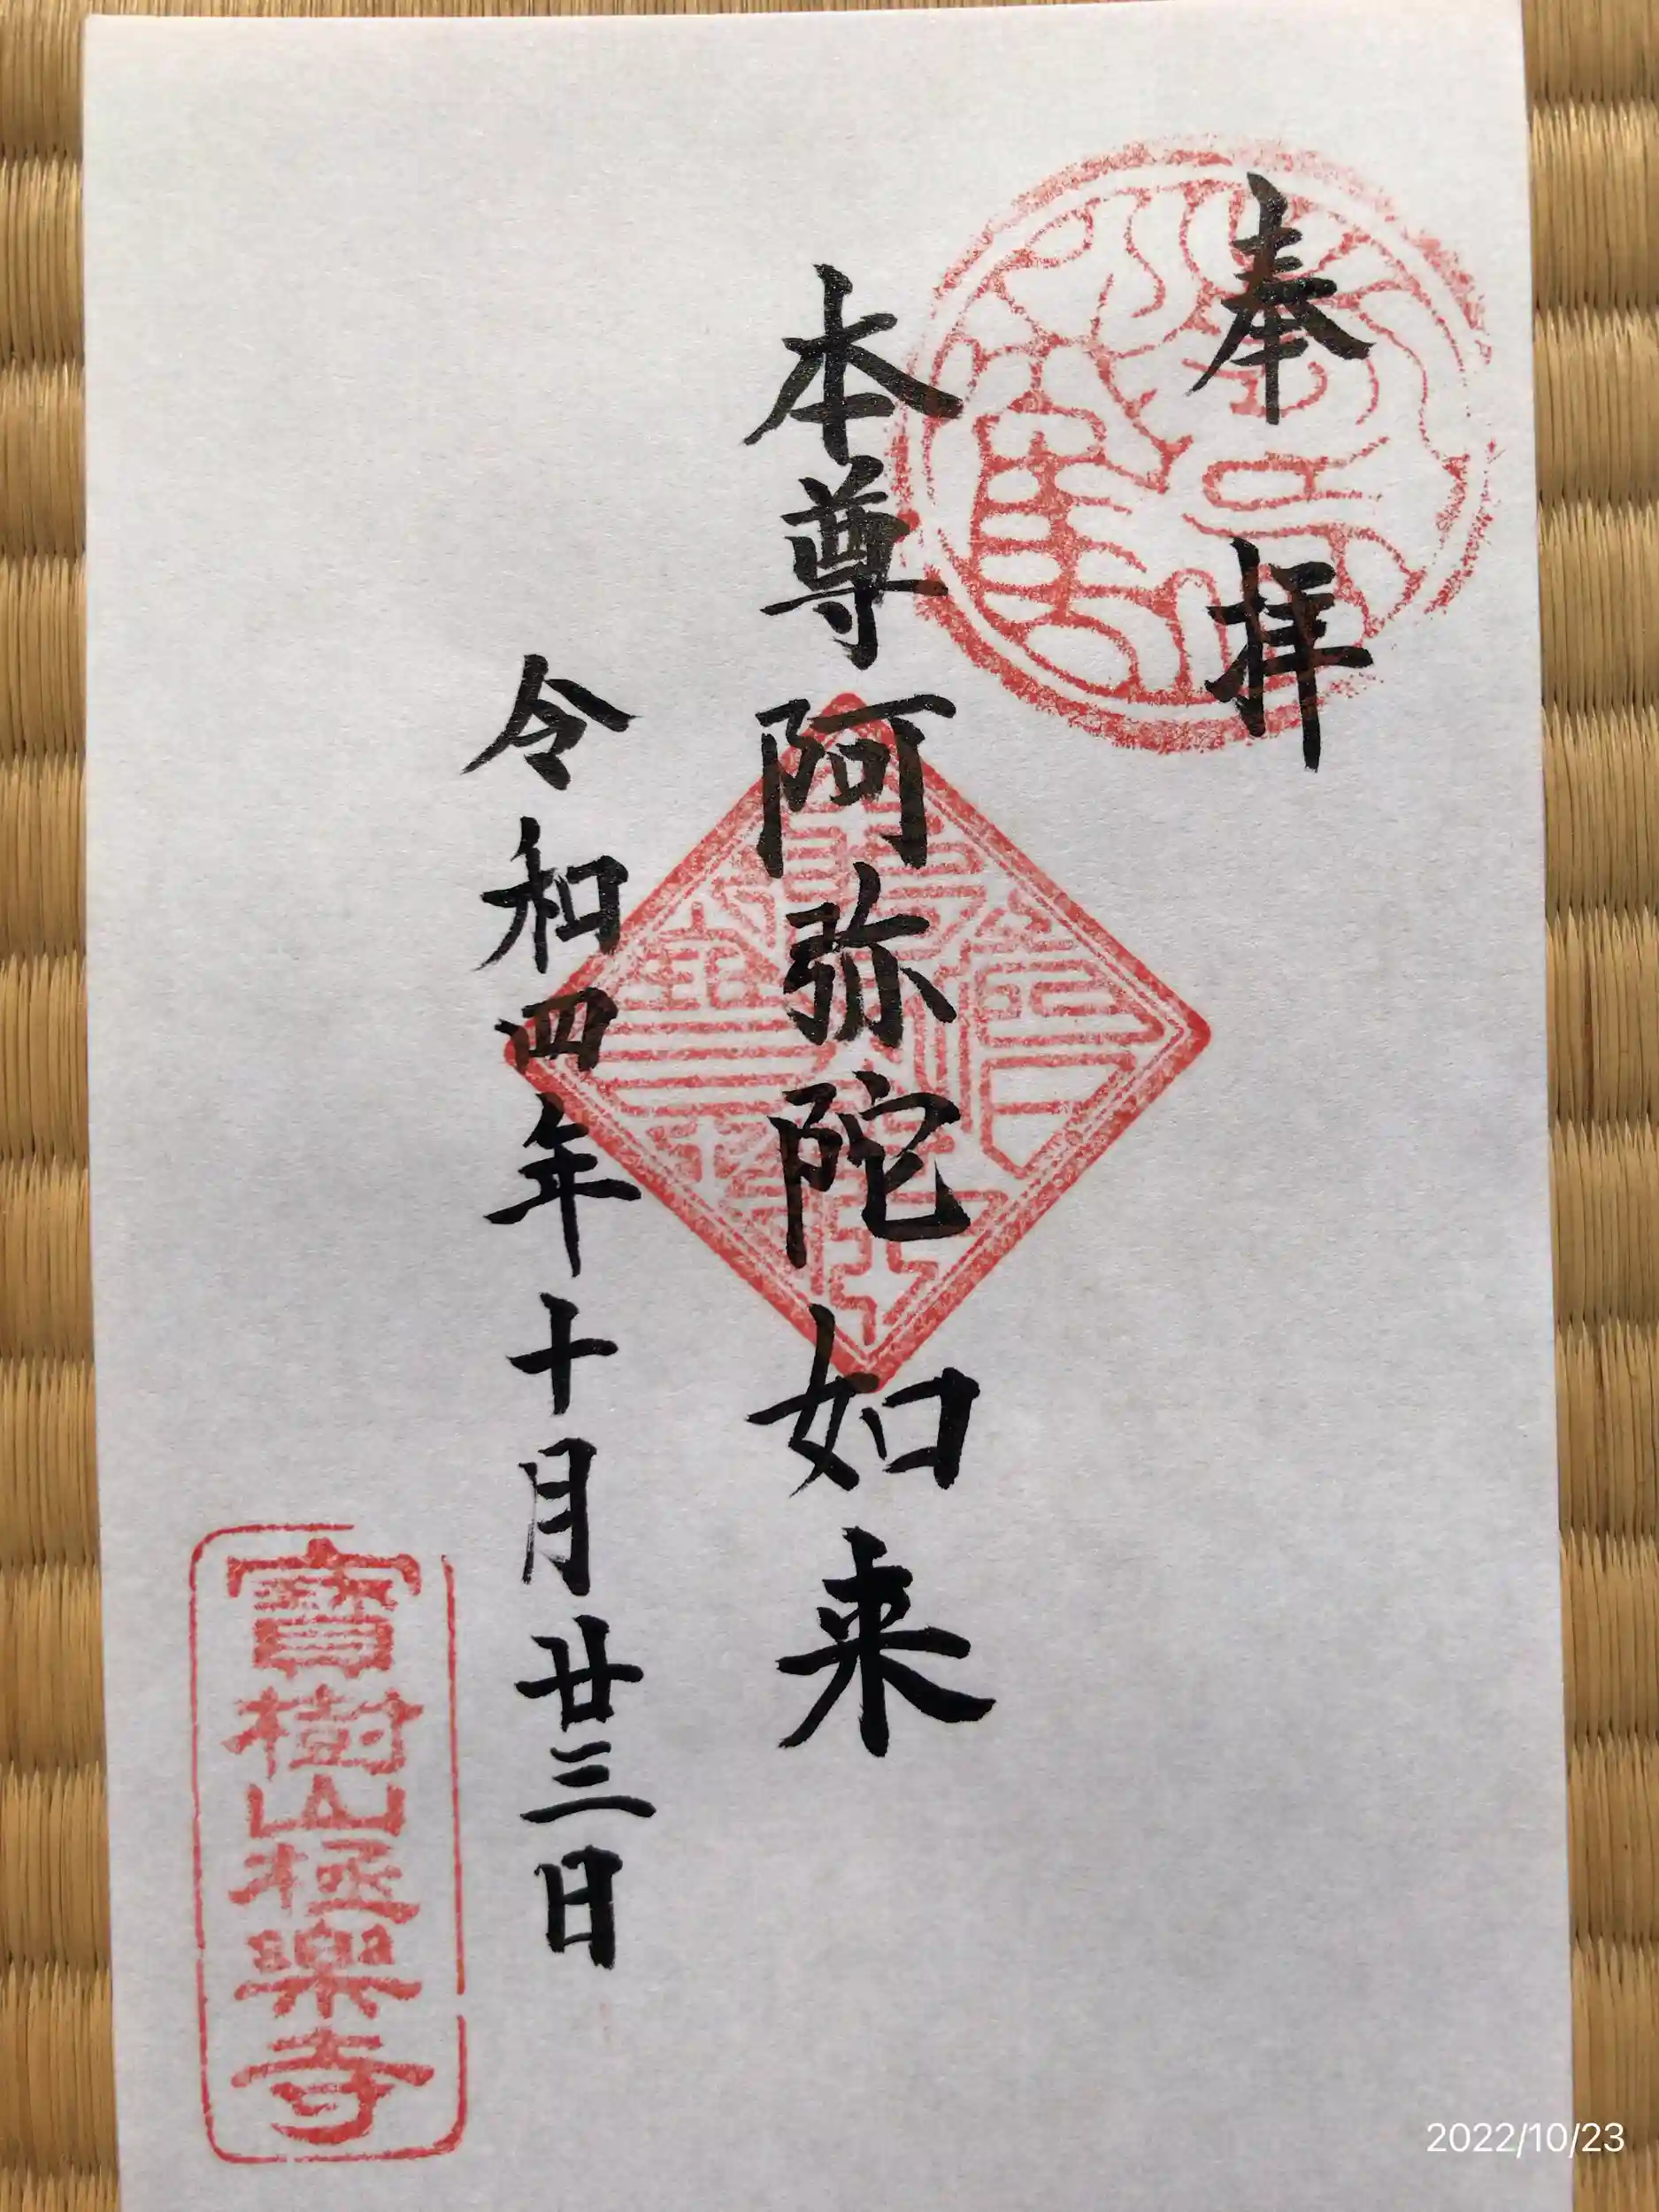 奉拝
本尊阿弥陀如来
令和四年十月廿三日
寳樹山極楽寺
2022/10/23